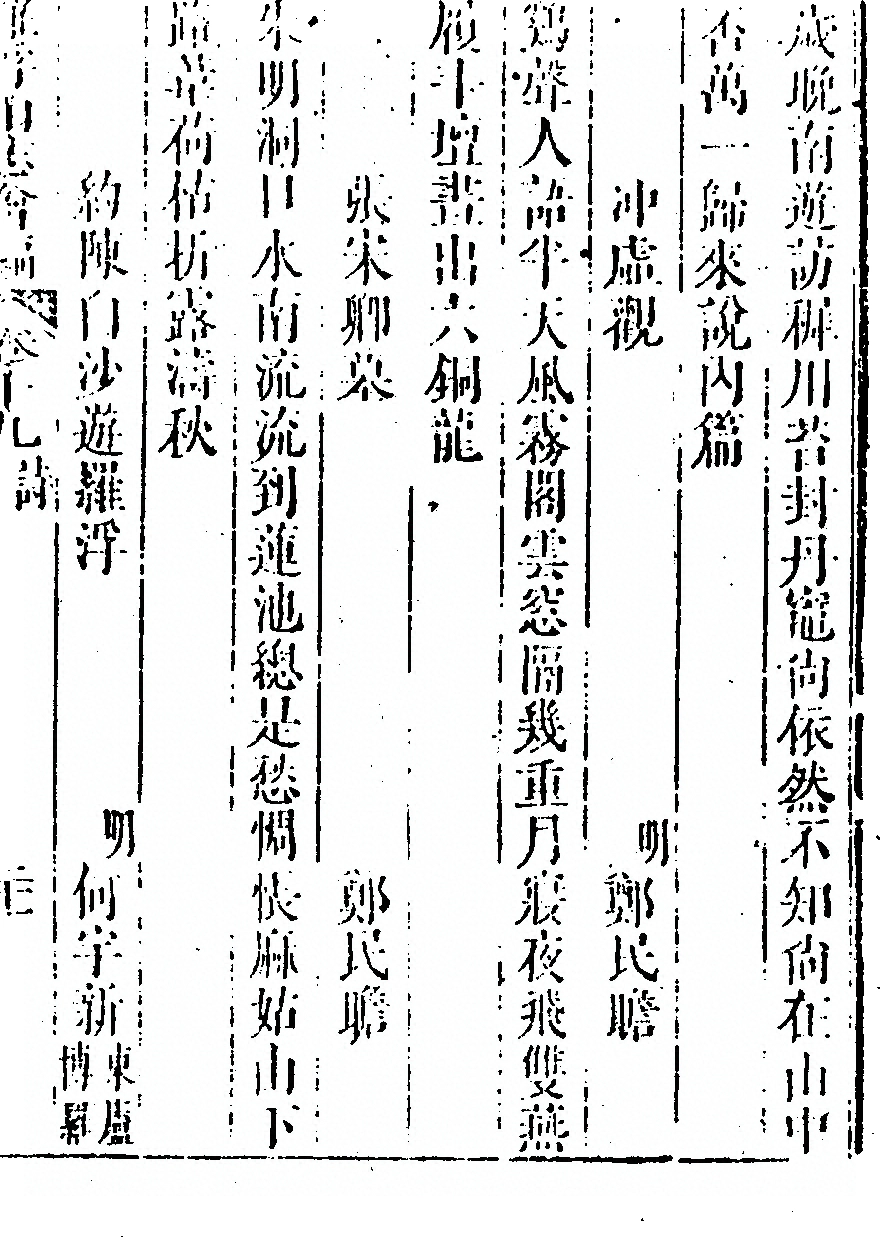 歲晚南遊訪稚川苔封丹竈尚依然不知尚在山中
否萬一歸來說內篇
冲虛觀 明 鄭民瞻
鷄聲人語半天風霧閣雲窓隔幾重月寢夜飛雙燕
履斗壇晝出六銅龍
張宋卿墓 鄭民瞻
朱明洞口水南流流到蓮池總是愁惆悵麻姑山下
路芰荷枯折露濤秋
約陳白沙遊羅浮 明 何宇新 東廬 博羅
卷十九 詩